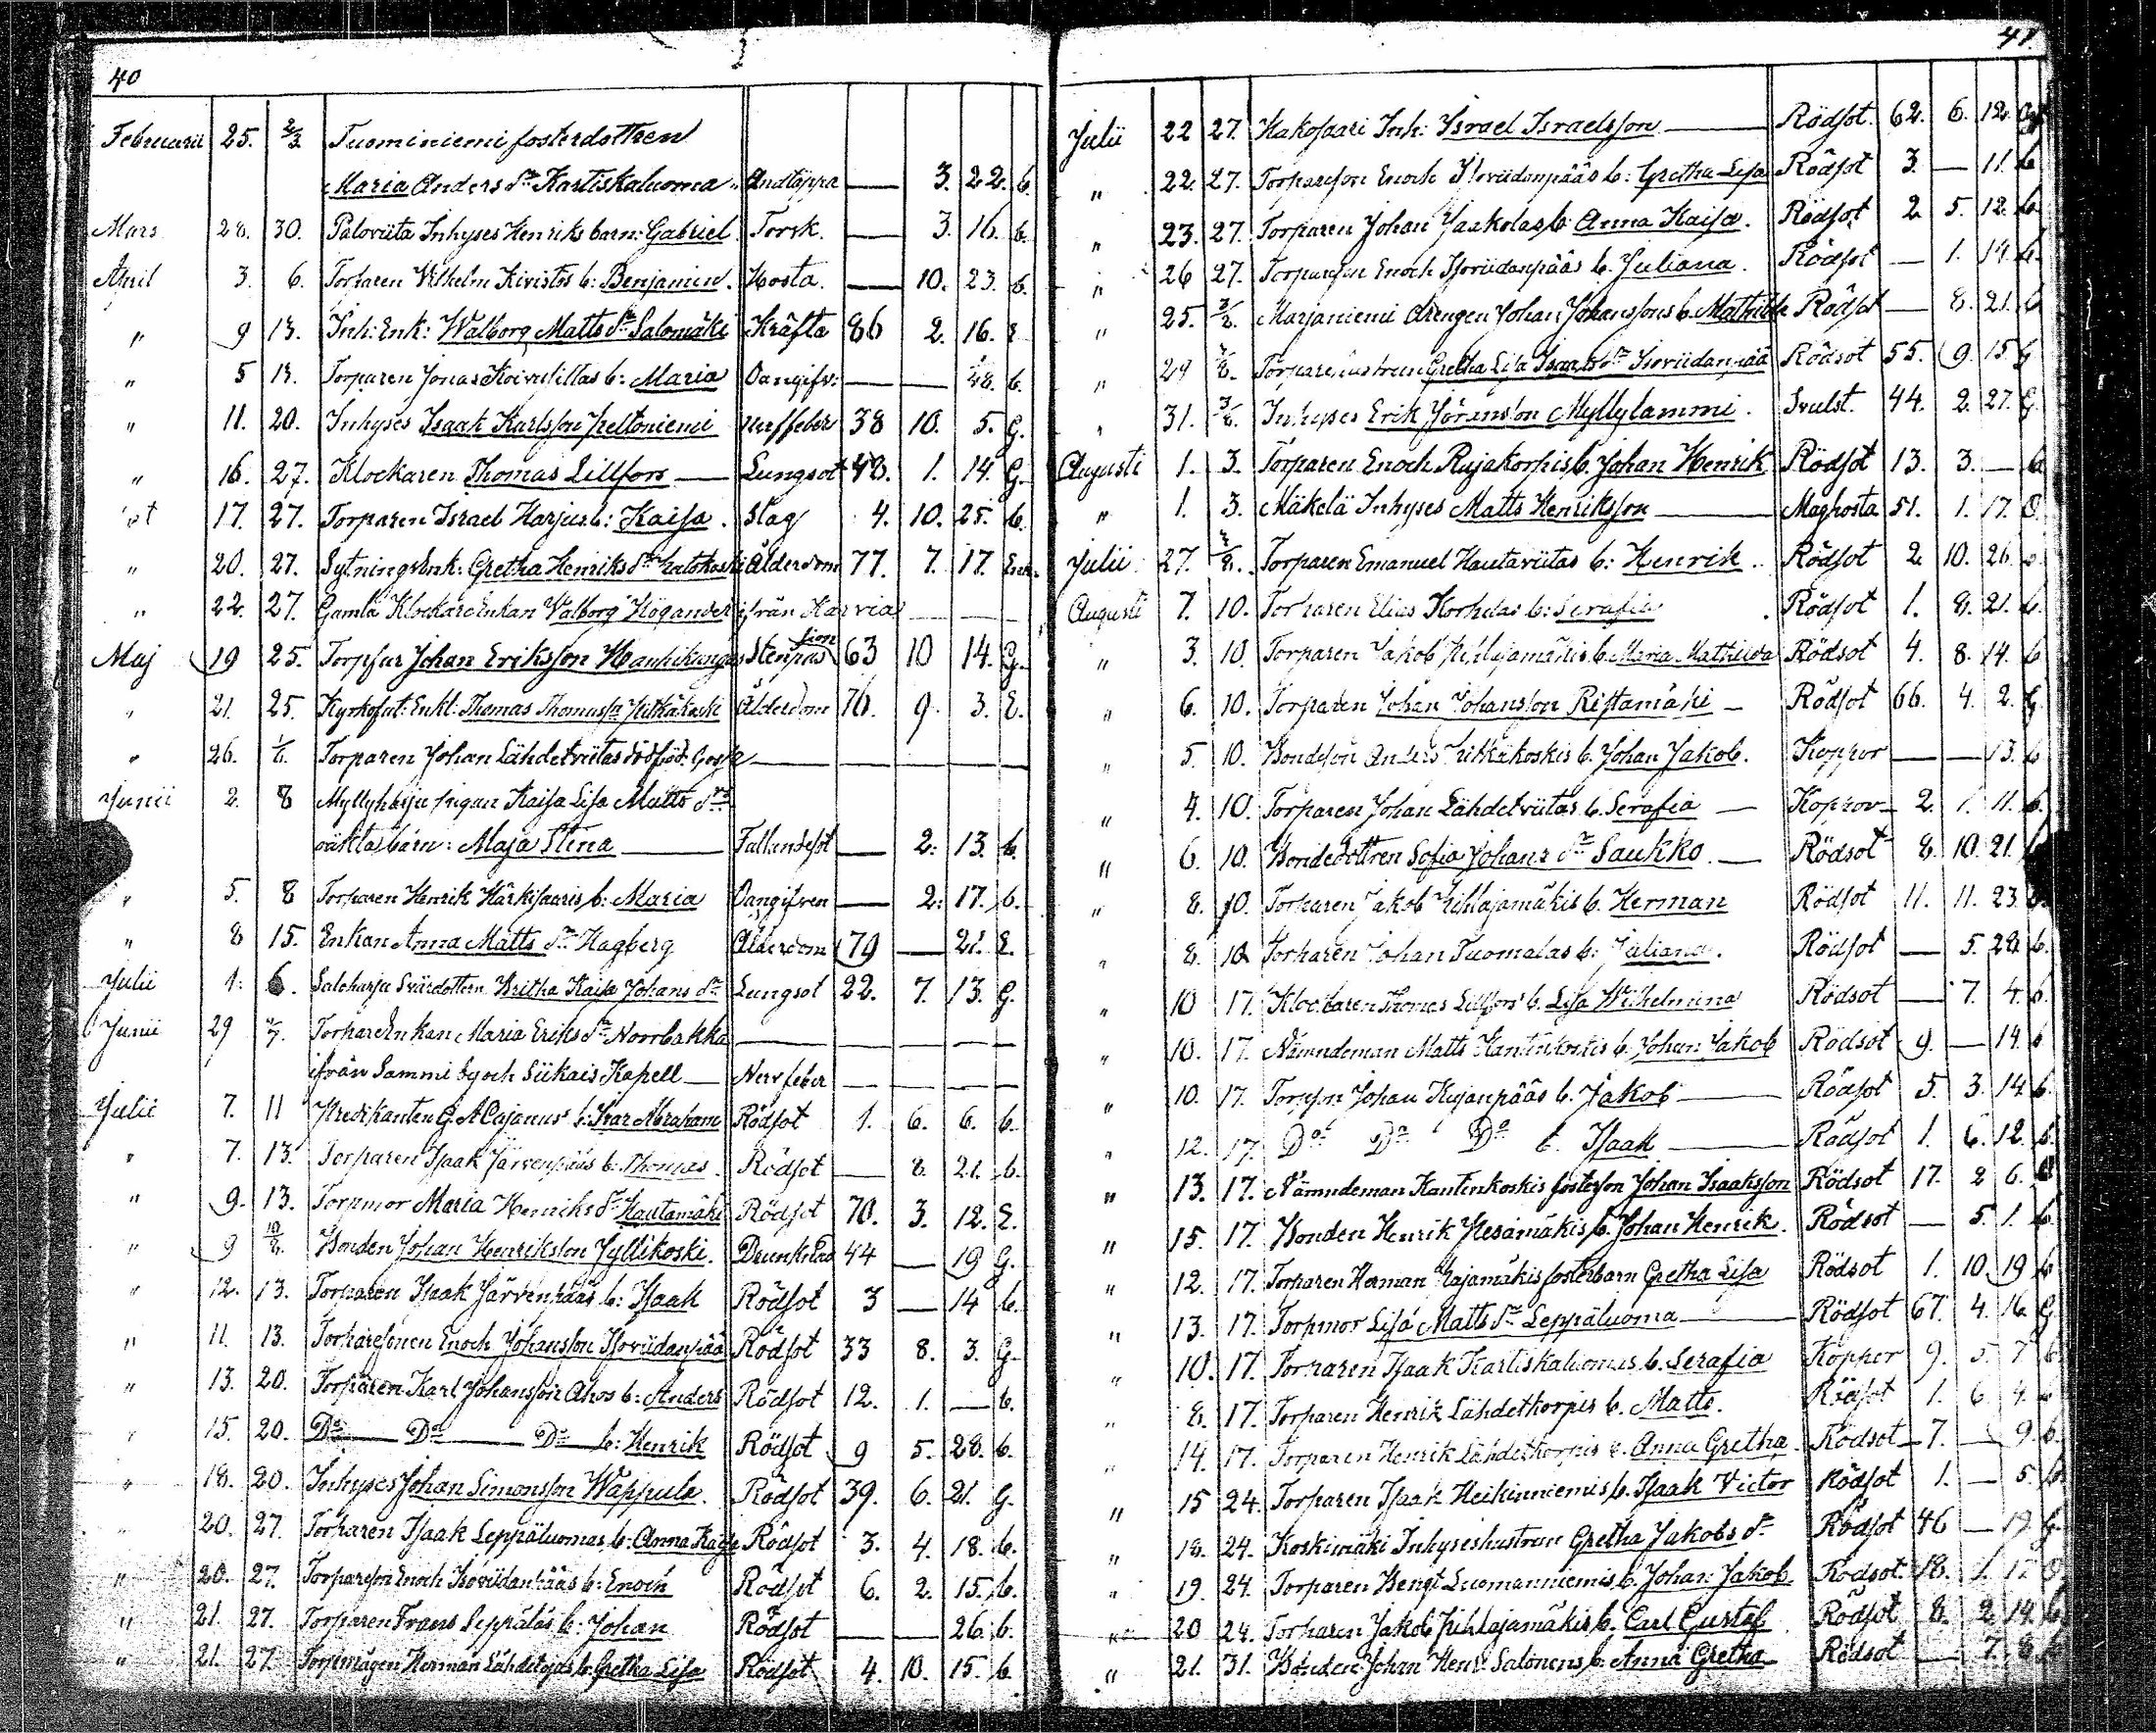 40
Februarii 25. 2/3 Tuominiemi fosterdottren
Maria Anders dr Kartiskaluoma Andtäppa — 3. 22. b.
Mars 28. 30. Paloviita Inhyses Henriks barn: Gabriel Torsk. — 3. 16. b.
April 3. 6. Torparen Wilhelm Kivistös b: Benjamin. Hosta. — 10. 23. b.
" 9 13. Inh: Enk: Walborg Matts dr Salomäki Kräfta 86 2. 16. E
" 5 13. Torparen Jonas Koivusillas b: Maria Oangifv: — — 28. b.
" 11. 20. Inhyses Isaak Karlsson Peltoniemi nerffeber 38 10. 5. G.
" 16. 27. Klockaren Thomas Lillfors — Lungsot 48. 1. 14. G.
17. 27. Torparen Israel Harjus b: Kaisa. Slag 4. 10. 25. b.
" 20. 27. Sytningsenk: Gretha Henriks dr Ålderdom 77. 7. 17. Enk.
" 22. 27. Gamla Klockare Enkan Walborg Högander ifrån Karvia — — —
Maj 19 25. Torpfar Johan Eriksson Hanhikangas Stenpassion 63 10 14. G.
" 21. 25. Kyrkofat: Enkl: Thomas Thomasson Pitkäkoski Ålderdom 76. 9. 3. E.
" 26. 1/6. Torparen Johan Lähdetviitas dödföd: Gosse — — — —
Junii 2. 8 Myllyharju pigan Kaisa Lisa Matts drs
oäkta barn: Maja Stina — Fallandesot — 2. 13. b.
" 5. 8 Torparen Henrik Härkisaaris b: Maria Oangifven — 2. 17. b.
" 8 15. Enkan Anna Matts dr Hagberg Ålderdom 79 — 21. E.
Julii 1. 6. Saloharju Svärdottern Britha Kaisa Johans dr Lungsot 22. 7. 13. G.
Junii 29 4/7. Torpare Enkan Maria Eriks dr Norrbakka — — — —
ifrån Sammi by och Siikais Kapell — Nervfeber — — —
Julii 7. 11 Predikanten G. A Cajanus' b: Ivar Abraham Rödsot 1. 6. 6. b.
" 7. 13. Torparen Isaak Järvenpääs b: Thomas. Rödsot — 8. 21. b.
" 9. 13. Torpmor Maria Henriks dr Hautamäki Rödsot 70. 3. 12. E.
" 9 10/8. Bonden Johan Henriksson Jyllikoski. Drunknad 44 — 19 G.
" 12. 13. Torparen Isaak Järvenpääs b: Isaak Rödsot 3 — 14 b.
" 11. 13. Torparesonen Enoch Johansson Isoviidanpää Rödsot 33 8. 3. G.
" 13. 20. Torparen Karl Johansson Ahos b: Anders Rödsot 12. 1. — b.
" 15. 20. Do — Do — Do b: Henrik Rödsot 9 5. 28. b.
" 18. 20. Inhyses Johan Simonsson Wäppula. Rödsot 39. 6. 21. G.
" 20. 27. Torparen Isaak Leppäluomas b: Anna Kaisa Rödsot 3. 4. 18. b.
" 20. 27. Torpareson Enoch Isoviidanpääs b: Enoch Rödsot 6. 2. 15. b.
" 21. 27. Torparen Frans Seppäläs b: Johan Rödsot — — 26. b.
" 21. 27. Torpmågen Herman Lähdetojas b: Gretha Lisa Rödsot 4. 10. 15. b.
41.
Julii 22 27. Kakosaari Inh: Israel Israelsson — Rödsot. 62. 6. 12.
" 22. 27. Torpareson Enoch Isoviidanpääs b: Gretha Lisa Rödsot 3. — 11. b
" 23. 27. Torparen Johan Jaakolas b: Anna Kaisa. Rödsot 2 5. 12. b.
" 26 27. Torpareson Enoch Isoviidanpääs b. Juliana. Rödsot — 1. 14. b.
" 25. 3/8. Marjaniemi drengen Johan Johanssons b. Mathilda Rödsot — 8. 21. b
" 29 3/8. Torparehustrun Gretha Lisa Isaaks dr Isoviidanpää Rödsot 55. 9. 15 G
" 31. 3/8. Inhyses Erik Jöransson Myllylammi. Svulst. 44. 2. 27. G.
Augusti 1. 3. Torparen Enoch Rajakorpis b. Johan Henrik Rödsot 13. 3. — b.
" 1. 3. Mäkelä Inhyses Matts Henriksson — Maghosta 51. 1. 17. G.
Julii 27. 4/8. Torparen Emanuel Hautaviitas b: Henrik.. Rödsot 2 10. 26.
Augusti 7. 10. Torparen Elias Korholas b: Serafia Rödsot 1. 8. 21. b.
" 3. 10. Torparen Jakob Pihlajamäkis b. Maria Mathilda Rödsot 4. 8. 14. b
" 6. 10. Torparen Johan Johansson Ristamäki — Rödsot 66. 4. 2. G.
" 5. 10. Bondeson Anders Pitkäkoskis b. Johan Jakob. Koppor — — 13. b
" 4. 10. Torparen Johan Lähdetviitas b. Serafia — Koppor 2. 1. 11. b.
" 6. 10. Bondedottren Sofia Johans dr Saukko. — Rödsot 8. 10. 21.
" 8. 10. Torparen Jakob Pihlajamäkis b. Herman Rödsot 11. 11. 23.
" 8. 10. Torparen Johan Tuomalas b: Juliana. Rödsot — 5. 28. b.
" 10 17. Klockaren Thomas Lillfors' b. Lisa Wilhelmina Rödsot — 7. 4. b.
" 10. 17. Nämndeman Matts Kantinkoskis b. Johan Jakob Rödsot 9. — 14. b
" 10. 17. Torpson Johan Kujanpääs b. Jakob — Rödsot 5. 3. 14. b.
" 12. 17. Do Do Do b. Isaak — Rödsot 1. 6. 12. b.
" 13. 17. Nämndeman Kantinkoskis fosterson Johan Isaaksson Rödsot 17. 2 6.
" 15. 17. Bonden Henrik Kesämäkis b. Johan Henrik. Rödsot — 5. 1. b.
" 12. 17. Torparen Herman Rajamäkis fosterbarn Gretha Lisa Rödsot 1. 10 19 b
" 13. 17. Torpmor Lisa Matts dr Leppäluoma — Rödsot 67. 4. 16. G
" 10. 17. Torparen Isaak Kartiskaluomas b. Serafia Koppor 9. 5. 7 b.
" 8. 17. Torparen Henrik Lähdetkorpis b. Matts. Rödsot 1. 6. 4.
" 14. 17. Torparen Henrik Lähdetkorpis b. Anna Gretha. Rödsot 7. — 9. b.
" 15 24. Torparen Isaak Heikinniemis b. Isaak Victor Rödsot 1. — 5. b.
" 18. 24. Koskimäki Inhyseshustrun Gretha Jakobs dr Rödsot 46 — 19 G.
" 19. 24. Torparen Bengt Luomanniemis b. Johan Jakob. Rödsot. 18. 1. 17
" 20 24. Torparen Jakob Pihlajamäkis b. Carl Gustaf Rödsot 8. 2. 14. b.
" 21. 31. Bonden Johan Henr Salonens b. Anna Gretha Rödsot — 7. 8.